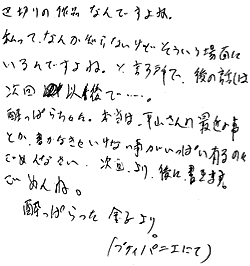 区切りの作品なんですよね。
私って、なんかぜらないけどそういう場面に
いるんですよね。と言う訳で、後の話しは
次回以後で……。
酔っぱらちゃた。本当は、平山さんの最近の事
とか、書かなきゃいけない事がいっぱい有るのに
ごめんなさい。次回より、後に書きます。
ごめんね。
酔っぱらった 金子より。
(プティパニエにて)